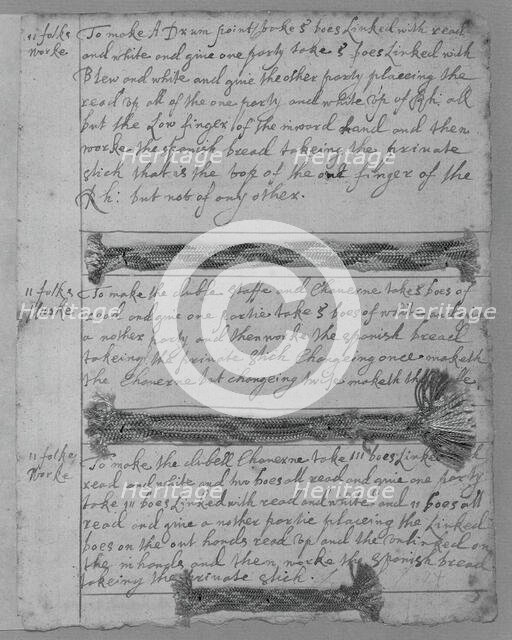 11 folks
Worke
To make A Drum point take 5 boes Linked with read
and white and give one party take 5 boes Linked with
Blew and white and give the other party placeing the
read up all of the one party and white up of Rh: all
but the Low finger of the inword hand and then
worke the spanish bread takeing the private
stick that is the top of the out finger of the
Rh: but not of only other.
11 folks
Worke
To make the duble staffe and Chanerne take 5 boes of
read and give one partie take 5 boes of white and give
a nother party and then worke the spanish bread
takeing the private stick Changeing once maketh
the Chanerne but changeing twise maketh the
11 folke
Worke
To make the dubell Chanerne take 111 boes Linked
read and white and two boes all read and give one party
take 111 boes Linked with read and white and 11 boes all
read and give a nother partie placeing the Linked
boes on the out hands read up and the unlinked on
the in hands and then worke the spanish bread
takeing the private stick.
Heritage Heritage Heritage
Heritage Heritage
Heritage Heritage Heritage